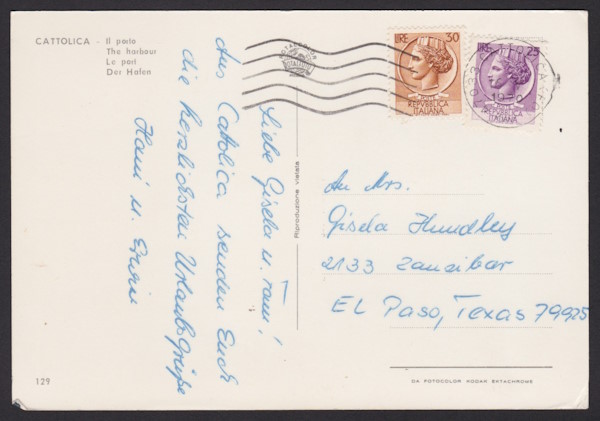 CATTOLICA - Il porto
The harbour
Le port
Der Hafen
Liebe Gisela u. Tom!
Aus Cattolica senden Euch
die herzlichsten Urlaubsgrüße
Hani u. Erwin
129
Riproduzione vietata
LIRE 30
POSTE
REPVBBLICA
ITALIANA
LIRE 25
POSTE
REPVBBLICA
ITALIANA
An Mrs.
Gisela Hundley
2133 Zanzibar
El Paso, Texas 79925
DA FOTOCOLOR KODAK EKTACHROME